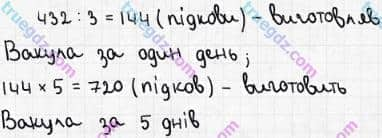 432 : 3 = 144 (підкови) - виготовляв
Вакула за один день;
144 × 5 = 720 (підков) - виготовить
Вакула за 5 днів